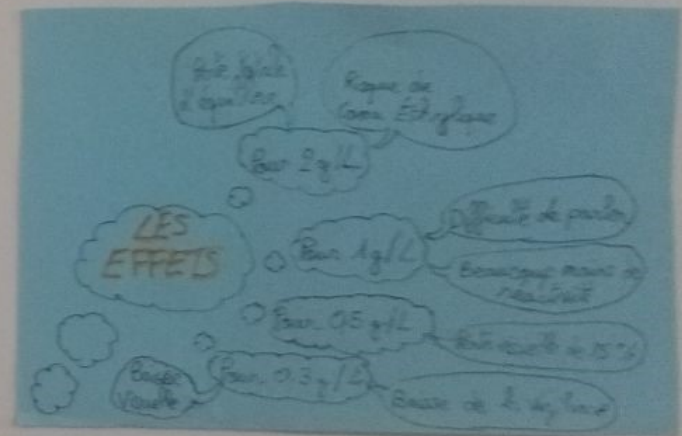 Perte totale
d'équilibre
Risque de
Coma Ethylique
Pour 2g/L
LES
EFFETS
Pour 1g/L
Difficulté de parler
Beaucoup moins de
réactivité
Pour 0,5g/L
Perte visuelle de 15%
Pour 0.3g/L
Baisse
Visuelle
Baisse de la vigilance